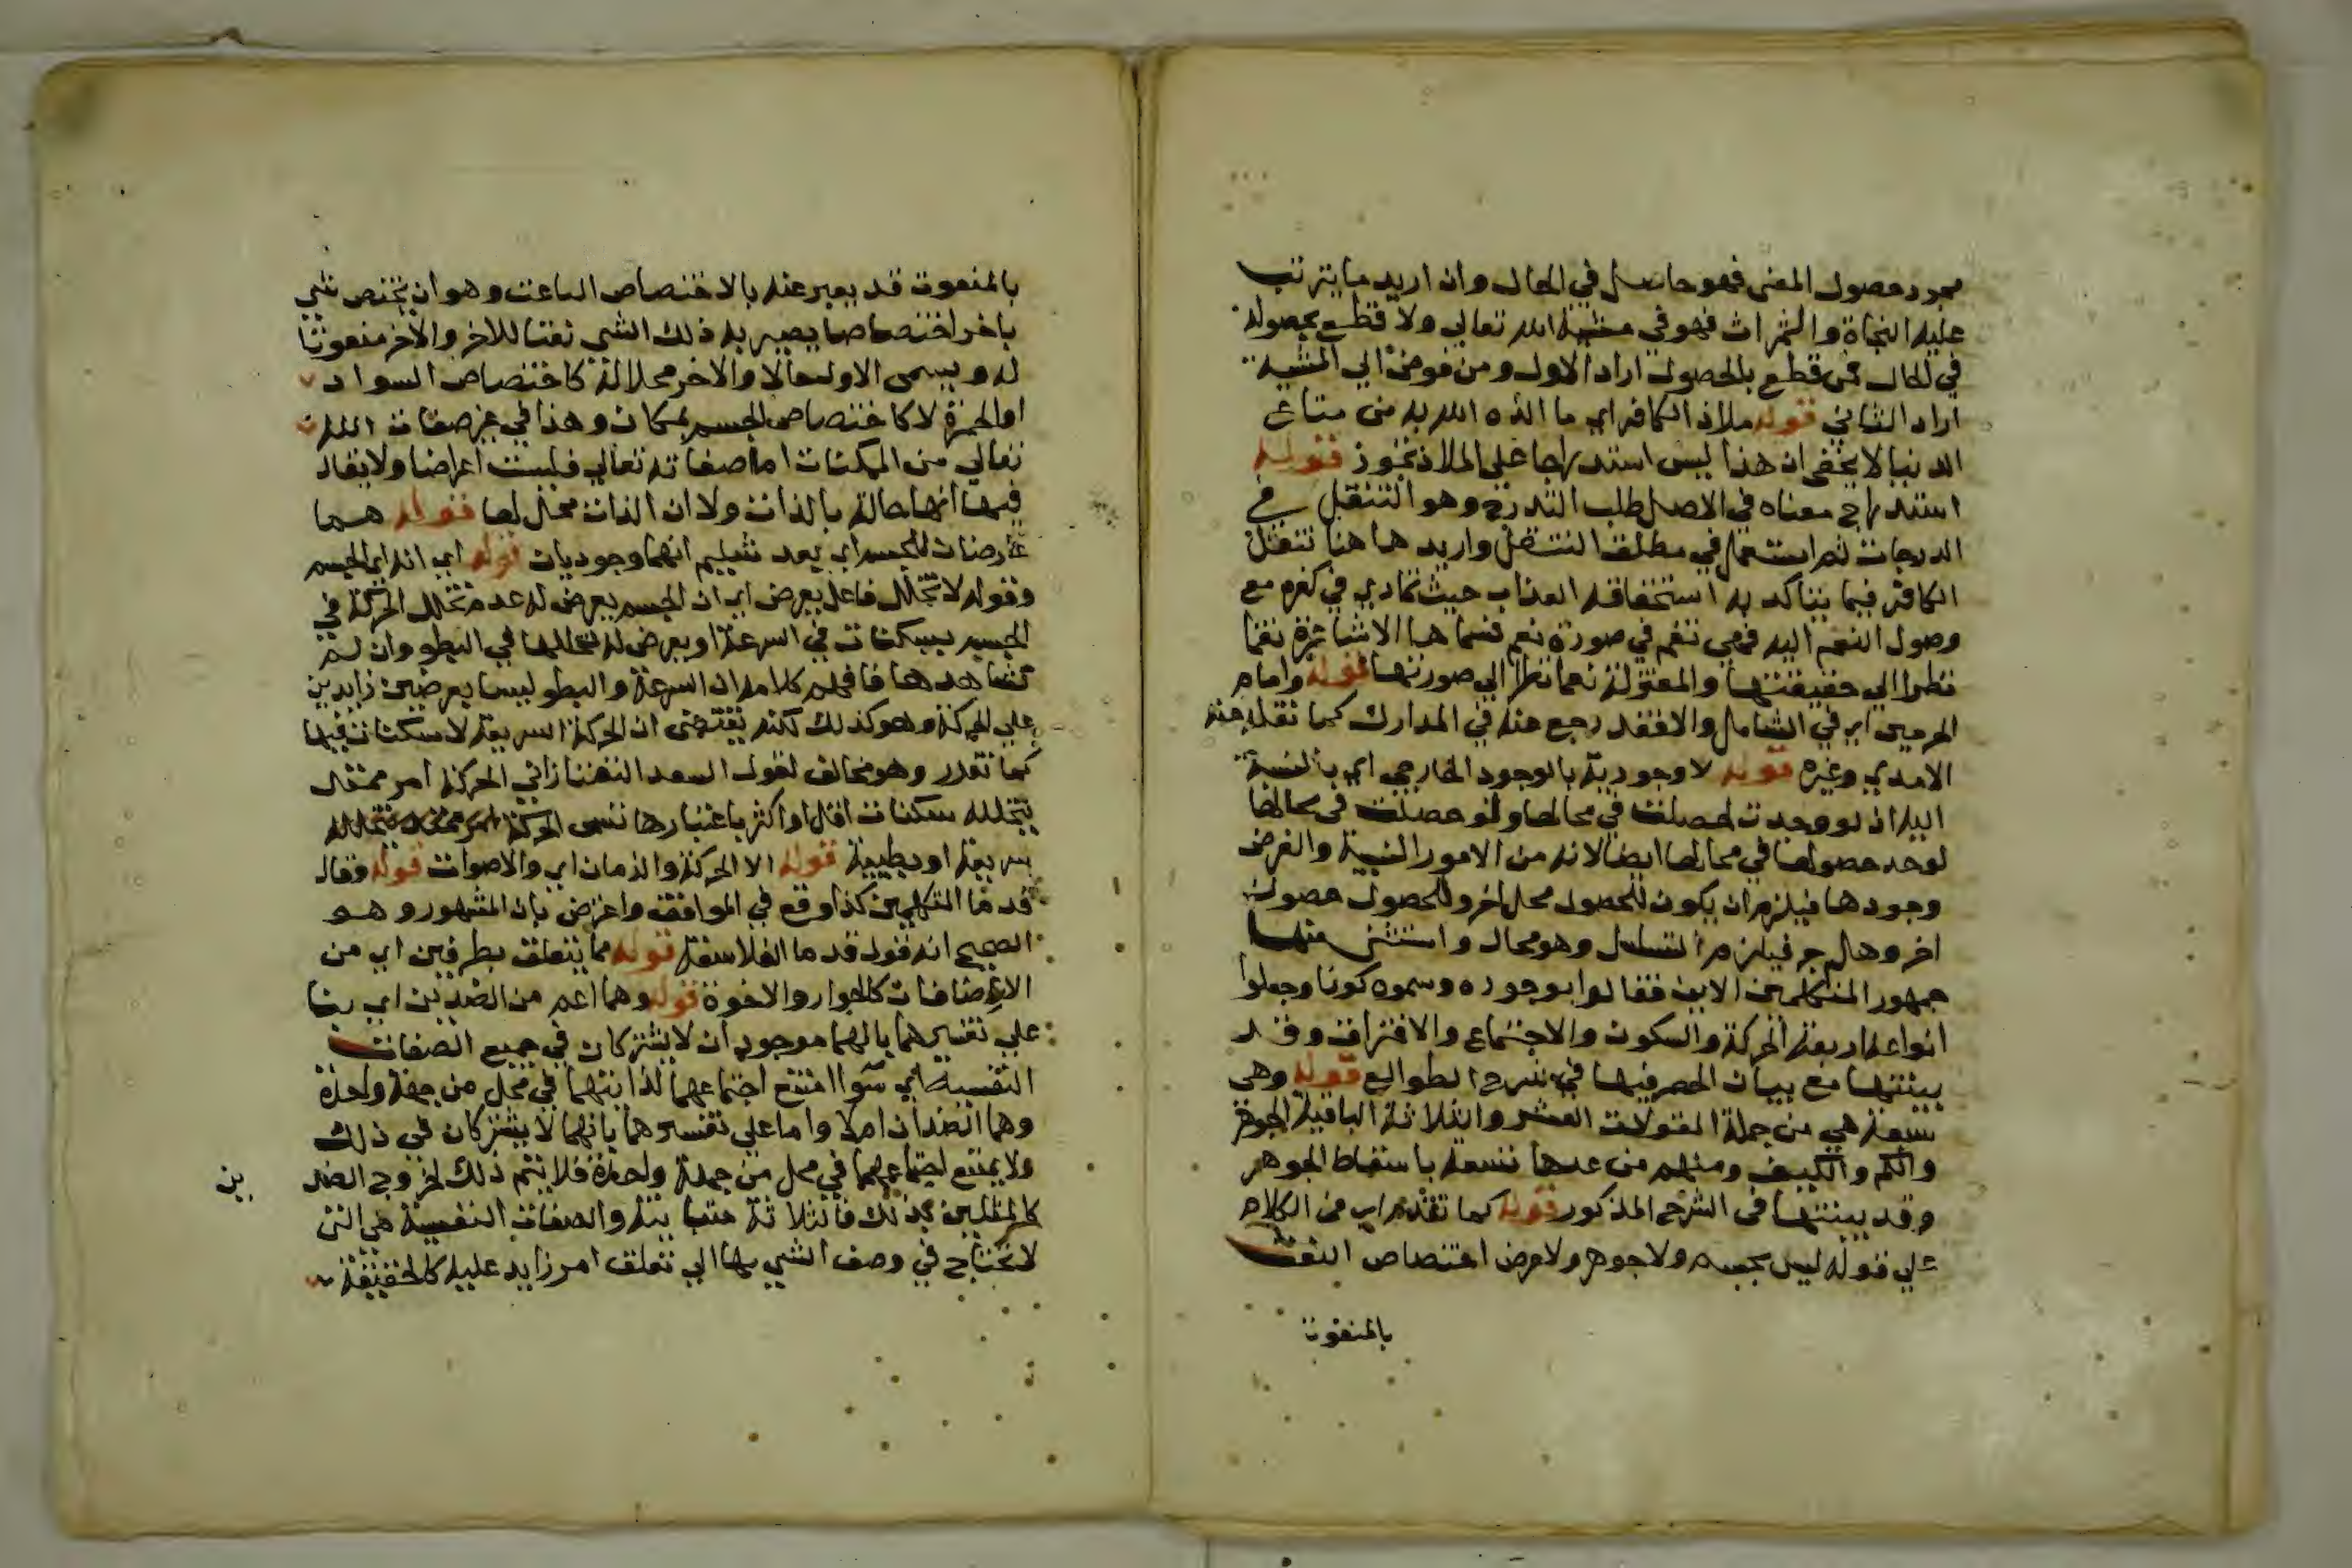 مجرد حصول المعنى فهو حاصل في الحال وان اريد ما يترتب
عليه النجاة والثمرات فهو في مشية الله تعالى ولا قطع بحصوله
في الحال فمن قطع بالحصول اراد الاول ومن فوض الي المشية
اراد الثاني قوله ملاذ الكافر اي ما الذه الله به من متاع
الدنيا لا يخفى ان هذا ليس استدراجا على الملاذ تجوز قوله
استدراج معناه في الاصل طلب التدرج وهو التنقل في
الدرجات ثم استعمل في مطلق التنقل واريد هاهنا تنقل
الكافر فيما يتاكد به استحقاقه العذاب حيث تمادي في كفره مع
وصول النعم اليه فهي نقم في صورة نعم فسماها الاشاعرة نقما
نظرا الي حقيقتها والمعتزلة نعما نظرا الي صورتها قوله وامام
الحرمين اي في الشامل والا فقد رجع عنه في المدارك كما نقله عنه
الامدي وغيره قوله لا وجودية بالوجود الخارجي اي بالنسبة
اليه ان لو وجدت لحصلت في محالها ولو حصلت في محالها
لوجد حصولها في محالها ايضا لانه من الامور النسبية والفرض
وجودها فيلزم ان يكون للحصول محل اخر وللحصول حصول
اخر وهلم جر فيلزم التسلسل وهو محال واستثنى منها
جمهور المتكلمين الاين فقالوا بوجوده وسموه كونا وجعلوا
انواعه اربعة الحركة والسكون والاجتماع والافتراق وقد
بينتها مع بيان الحصر فيها في شرح الطوالع قوله وهي
سبعة هي من جملة المقولات العشر والثلاثة الباقية الجوهر
والكم والكيف ومنهم من عدها تسعة باسقاط الجوهر
وقد بينتها في الشرح المذكور قوله كما تقدم اي من الكلام
علي قوله ليس بجسم ولا جوهر ولا عرض اختصاص النعت
بالمنعوت
بالمنعوت قد يعبر عنه بالاختصاص الناعت وهو ان يختص شي
باخر اختصاصا يصير به ذلك الشي نعتا للاخر والاخر منعوتا
له ويسمى الاول حالا والاخر محلا له كاختصاص السواد
او الحمرة لا كاختصاص الجسم بمكان وهذا في غير صفات الله
تعالي من الممكنات اما صفاته تعالي فليست اعراضا ولا يقال
فيها انها حالة بالذات ولا ان الذات محل لها قوله هما
عارضان للجسم اي بعد تسليم انهما وجوديات قوله اي انه اي الجسم
وقوله لا تخلل فاعل يعرض اي ان الجسم يعرض له عدم تخلل الحركة في
الجسم بسكنات في السرعة او يعرض له تخللها في البطو وان لم
تشاهدها فافهم كلامه ان السرعة والبطو ليسا بعرضين زايدين
علي الحركة وهو كذلك لكنه يقتضى ان الحركة السريعة لا سكنات فيها
كما تقرر وهو مخالف لقول السعد التفتازاني الحركة امر ممتد
يتخلله سكنات اقل او اكثر باعتبارها تسمى الحركة
سريعة او بطيئة قوله الا الحركة والزمان اي والاصوات قوله وقال
قدما المتكلمين كذا وقع في المواقف واعترض بان المشهور وهو
الصحيح انه قول قدما الفلاسفة قوله مما يتعلق بطرفين اي من
الاضافات كالجوار والاخوة قوله وهما اعم من الضدين اي بنا
علي تفسيرهما بانهما موجودان لا يشتركان في جميع الصفات
النفسية اي سوا امتنع اجتماعهما لذاتهما في محل من جهة واحدة
وهما الضدان اولا واما علي تفسيرهما بانهما لا يشتركان في ذلك
ولا يمتنع اجتماعهما في محل من جهة واحدة فلا يتم ذلك لخروج الضد
ين
كالمثلين بذلك فالثلاثة متباينة والصفات النفسية هي التي
لا تحتاج في وصف الشي بها الي تعلق امر زايد عليه كالحقيقة